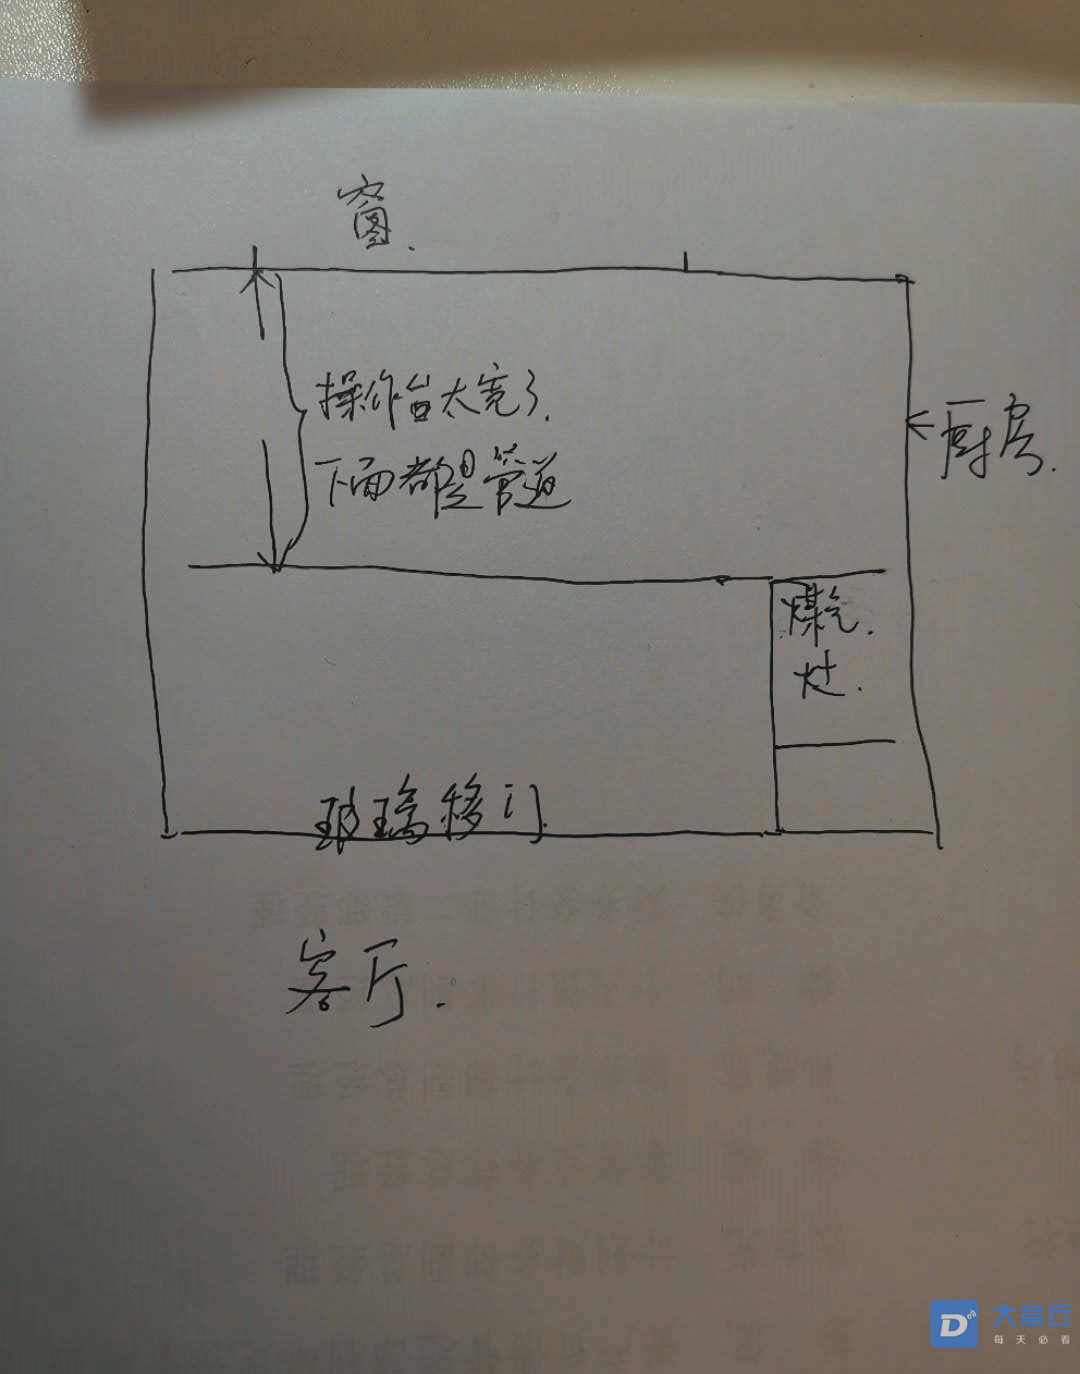 窗.
操作台太宽了.
下面都是管道
厨房.
煤气.
灶.
玻璃移门
客厅.
大章丘
每天必看